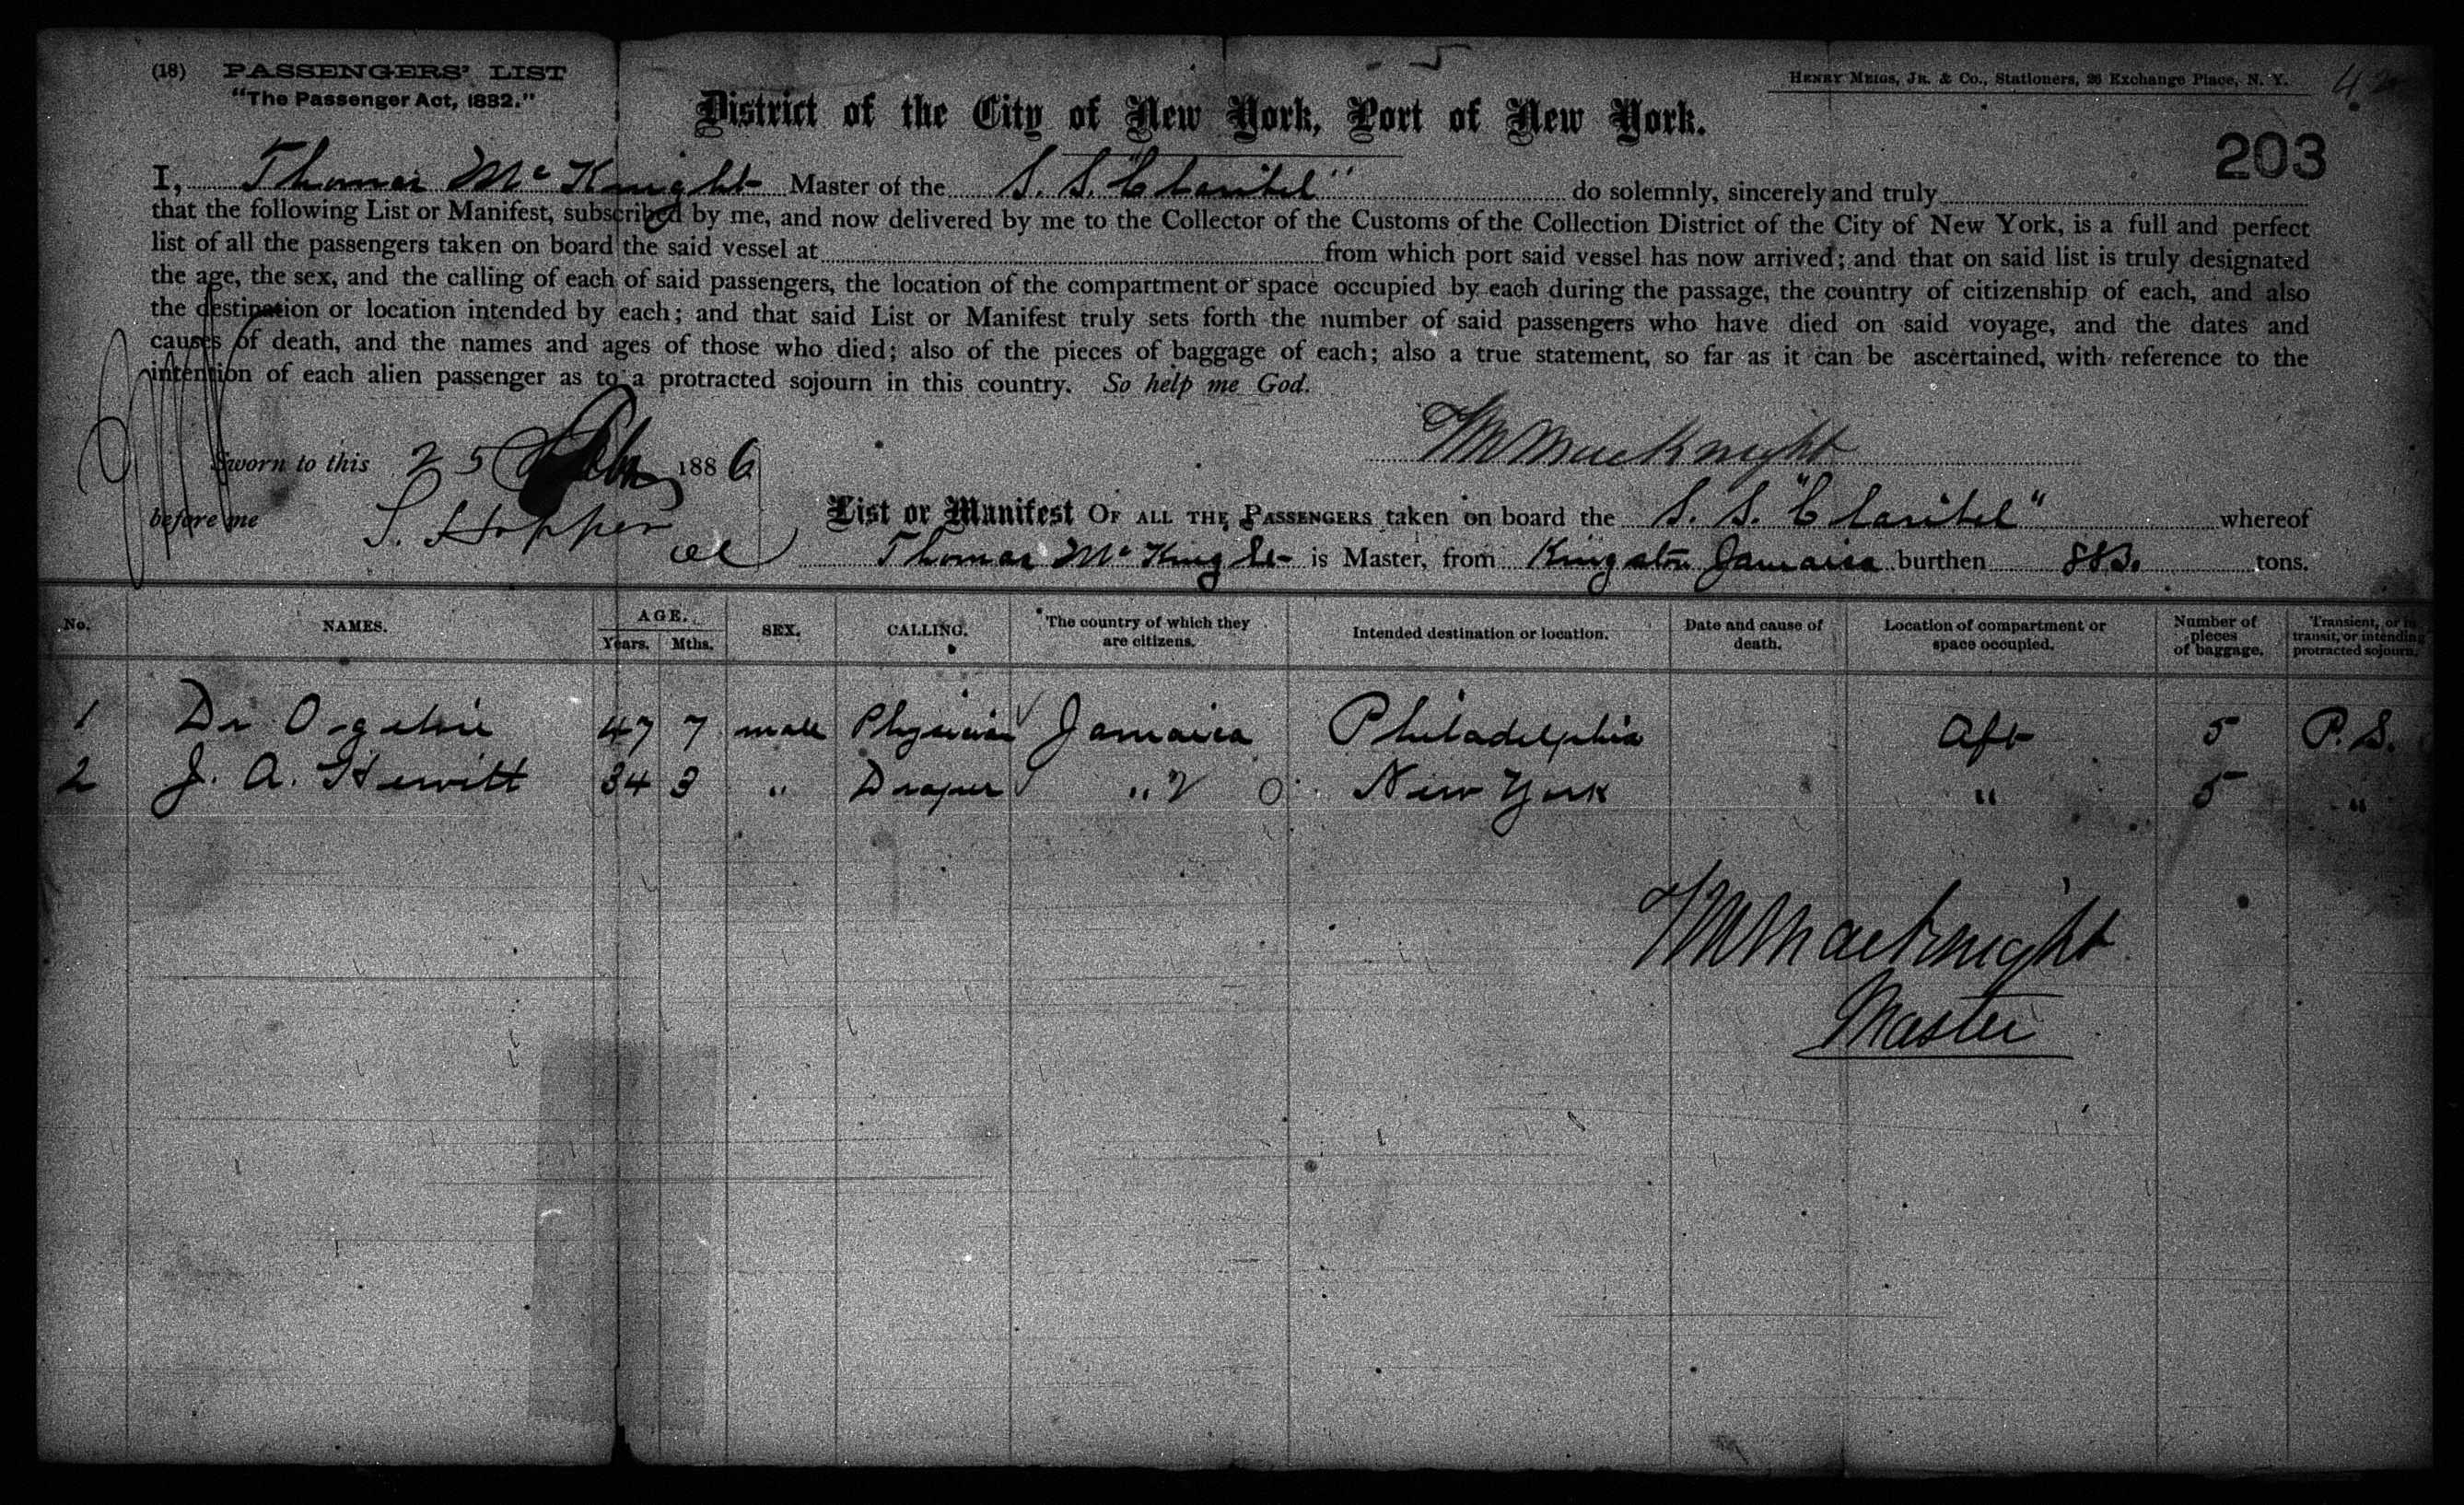 (18) PASSENGERS' LIST
"The Passenger Act, 1882."
HENRY MEIGS, JR. & CO., Stationers, 26 Exchange Place, N. Y.
District of the City of New York, Port of New York.
203
I, Thomas McKnight Master of the S. S. "Claribel" do solemnly, sincerely and truly
that the following List or Manifest, subscribed by me, and now delivered by me to the Collector of the Customs of the Collection District of the City of New York, is a full and perfect
list of all the passengers taken on board the said vessel at from which port said vessel has now arrived; and that on said list is truly designated
the age, the sex, and the calling of each of said passengers, the location of the compartment or space occupied by each during the passage, the country of citizenship of each, and also
the destination or location intended by each; and that said List or Manifest truly sets forth the number of said passengers who have died on said voyage, and the dates and
causes of death, and the names and ages of those who died; also of the pieces of baggage of each; also a true statement, so far as it can be ascertained, with reference to the
intention of each alien passenger as to a protracted sojourn in this country. So help me God.
Sworn to this 25 1886
before me S. Hopper
List or Manifest OF ALL THE PASSENGERS taken on board the S. S. "Claribel" whereof
Thomas McKnight is Master, from Kingston Jamaica burthen tons.
No. NAMES. AGE. Years. Mths. SEX. CALLING. The country of which they are citizens. Intended destination or location. Date and cause of death. Location of compartment or space occupied. Number of pieces of baggage. Transient, or in transit, or intending protracted sojourn.
1 Dr Ogilvie 47 7 male Physician Jamaica Philadelphia Aft 5 P. S.
2 J. A. Hewitt 34 3 " Draper " New York " 5 "
Master